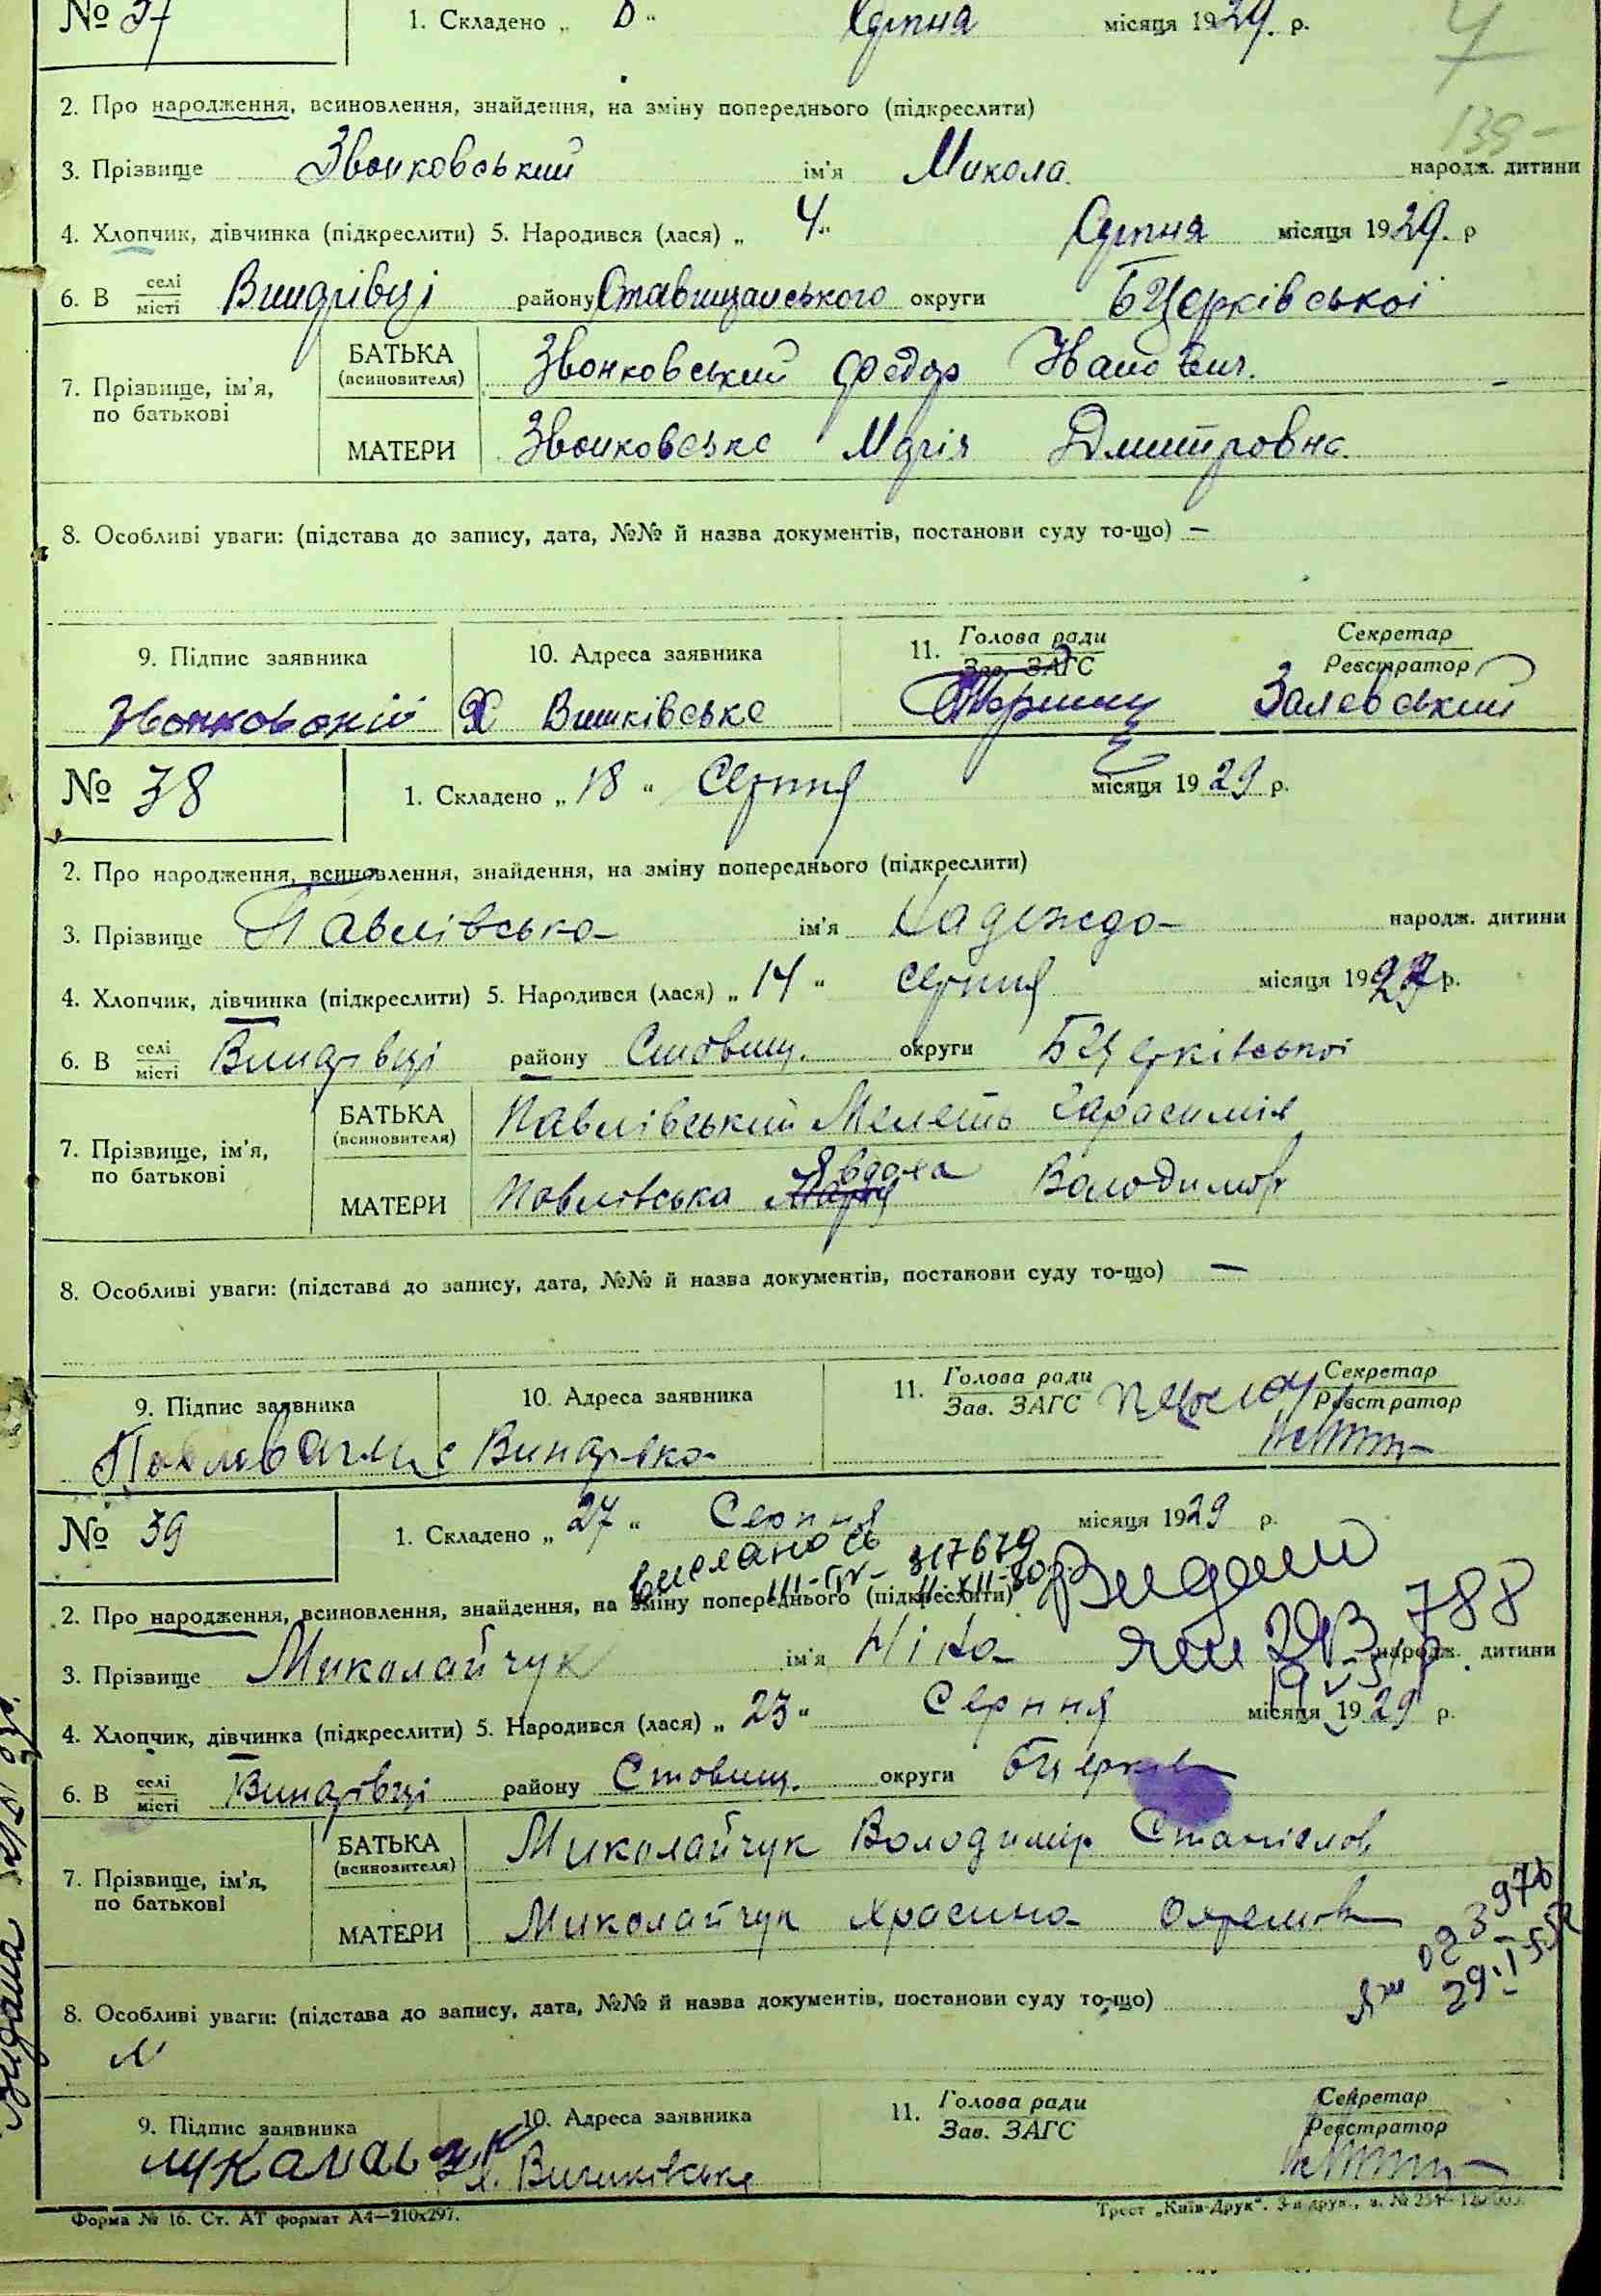 № 37 1. Складено „ " Серпня місяця 1929. р.
4
2. Про народження, всиновлення, знайдення, на зміну попереднього (підкреслити)
139 –
3. Прізвище Звонковський ім'я Микола народж. дитини
4. Хлопчик, дівчинка (підкреслити) 5. Народився (лася) „ 4 " Серпня місяця 1929. р
6. В селі/місті Винарівці району Ставищанського округи БЦерківської
7. Прізвище, ім'я, по батькові
БАТЬКА (всиновителя) Звонковський Федор Иванович.
МАТЕРИ Звонковська Марія Дмитровна.
8. Особливі уваги: (підстава до запису, дата, №№ й назва документів, постанови суду то-що) —
9. Підпис заявника 10. Адреса заявника 11. Голова ради Зав. ЗАГС Секретар Реєстратор
Х Вишківська Залевський
№ 38 1. Складено „ 18 " Серпня місяця 1929 р.
2. Про народження, всиновлення, знайдення, на зміну попереднього (підкреслити)
3. Прізвище Павлівська ім'я Надежда народж. дитини
4. Хлопчик, дівчинка (підкреслити) 5. Народився (лася) „ 14 " серпня місяця 1929 р.
6. В селі/місті Винарівці району Ставищ. округи БЦерківської
7. Прізвище, ім'я, по батькові
БАТЬКА (всиновителя) Павлівський Мелеть Гарасимів
МАТЕРИ Павлівська Явдоха Володимир
8. Особливі уваги: (підстава до запису, дата, №№ й назва документів, постанови суду то-що) —
9. Підпис заявника 10. Адреса заявника 11. Голова ради Зав. ЗАГС Секретар Реєстратор
№ 39 1. Складено „ 27 " Серпня місяця 1929 р.
вислано 317679
2. Про народження, всиновлення, знайдення, на зміну попереднього (підкреслити)
788
3. Прізвище Миколайчук ім'я Ніна народж. дитини
4. Хлопчик, дівчинка (підкреслити) 5. Народився (лася) „ 23 " Серпня місяця 1929 р.
6. В селі/місті Винарівці району Ставищ. округи БЦерків
7. Прізвище, ім'я, по батькові
БАТЬКА (всиновителя) Миколайчук Володимір Станіслав
МАТЕРИ Миколайчук
023976
29.I-55
8. Особливі уваги: (підстава до запису, дата, №№ й назва документів, постанови суду то-що)
9. Підпис заявника 10. Адреса заявника 11. Голова ради Зав. ЗАГС Секретар Реєстратор
х. Вишківська
Форма № 16. Ст. АТ формат А4—210х297. Трест „Київ-Друк". 3-я друк.